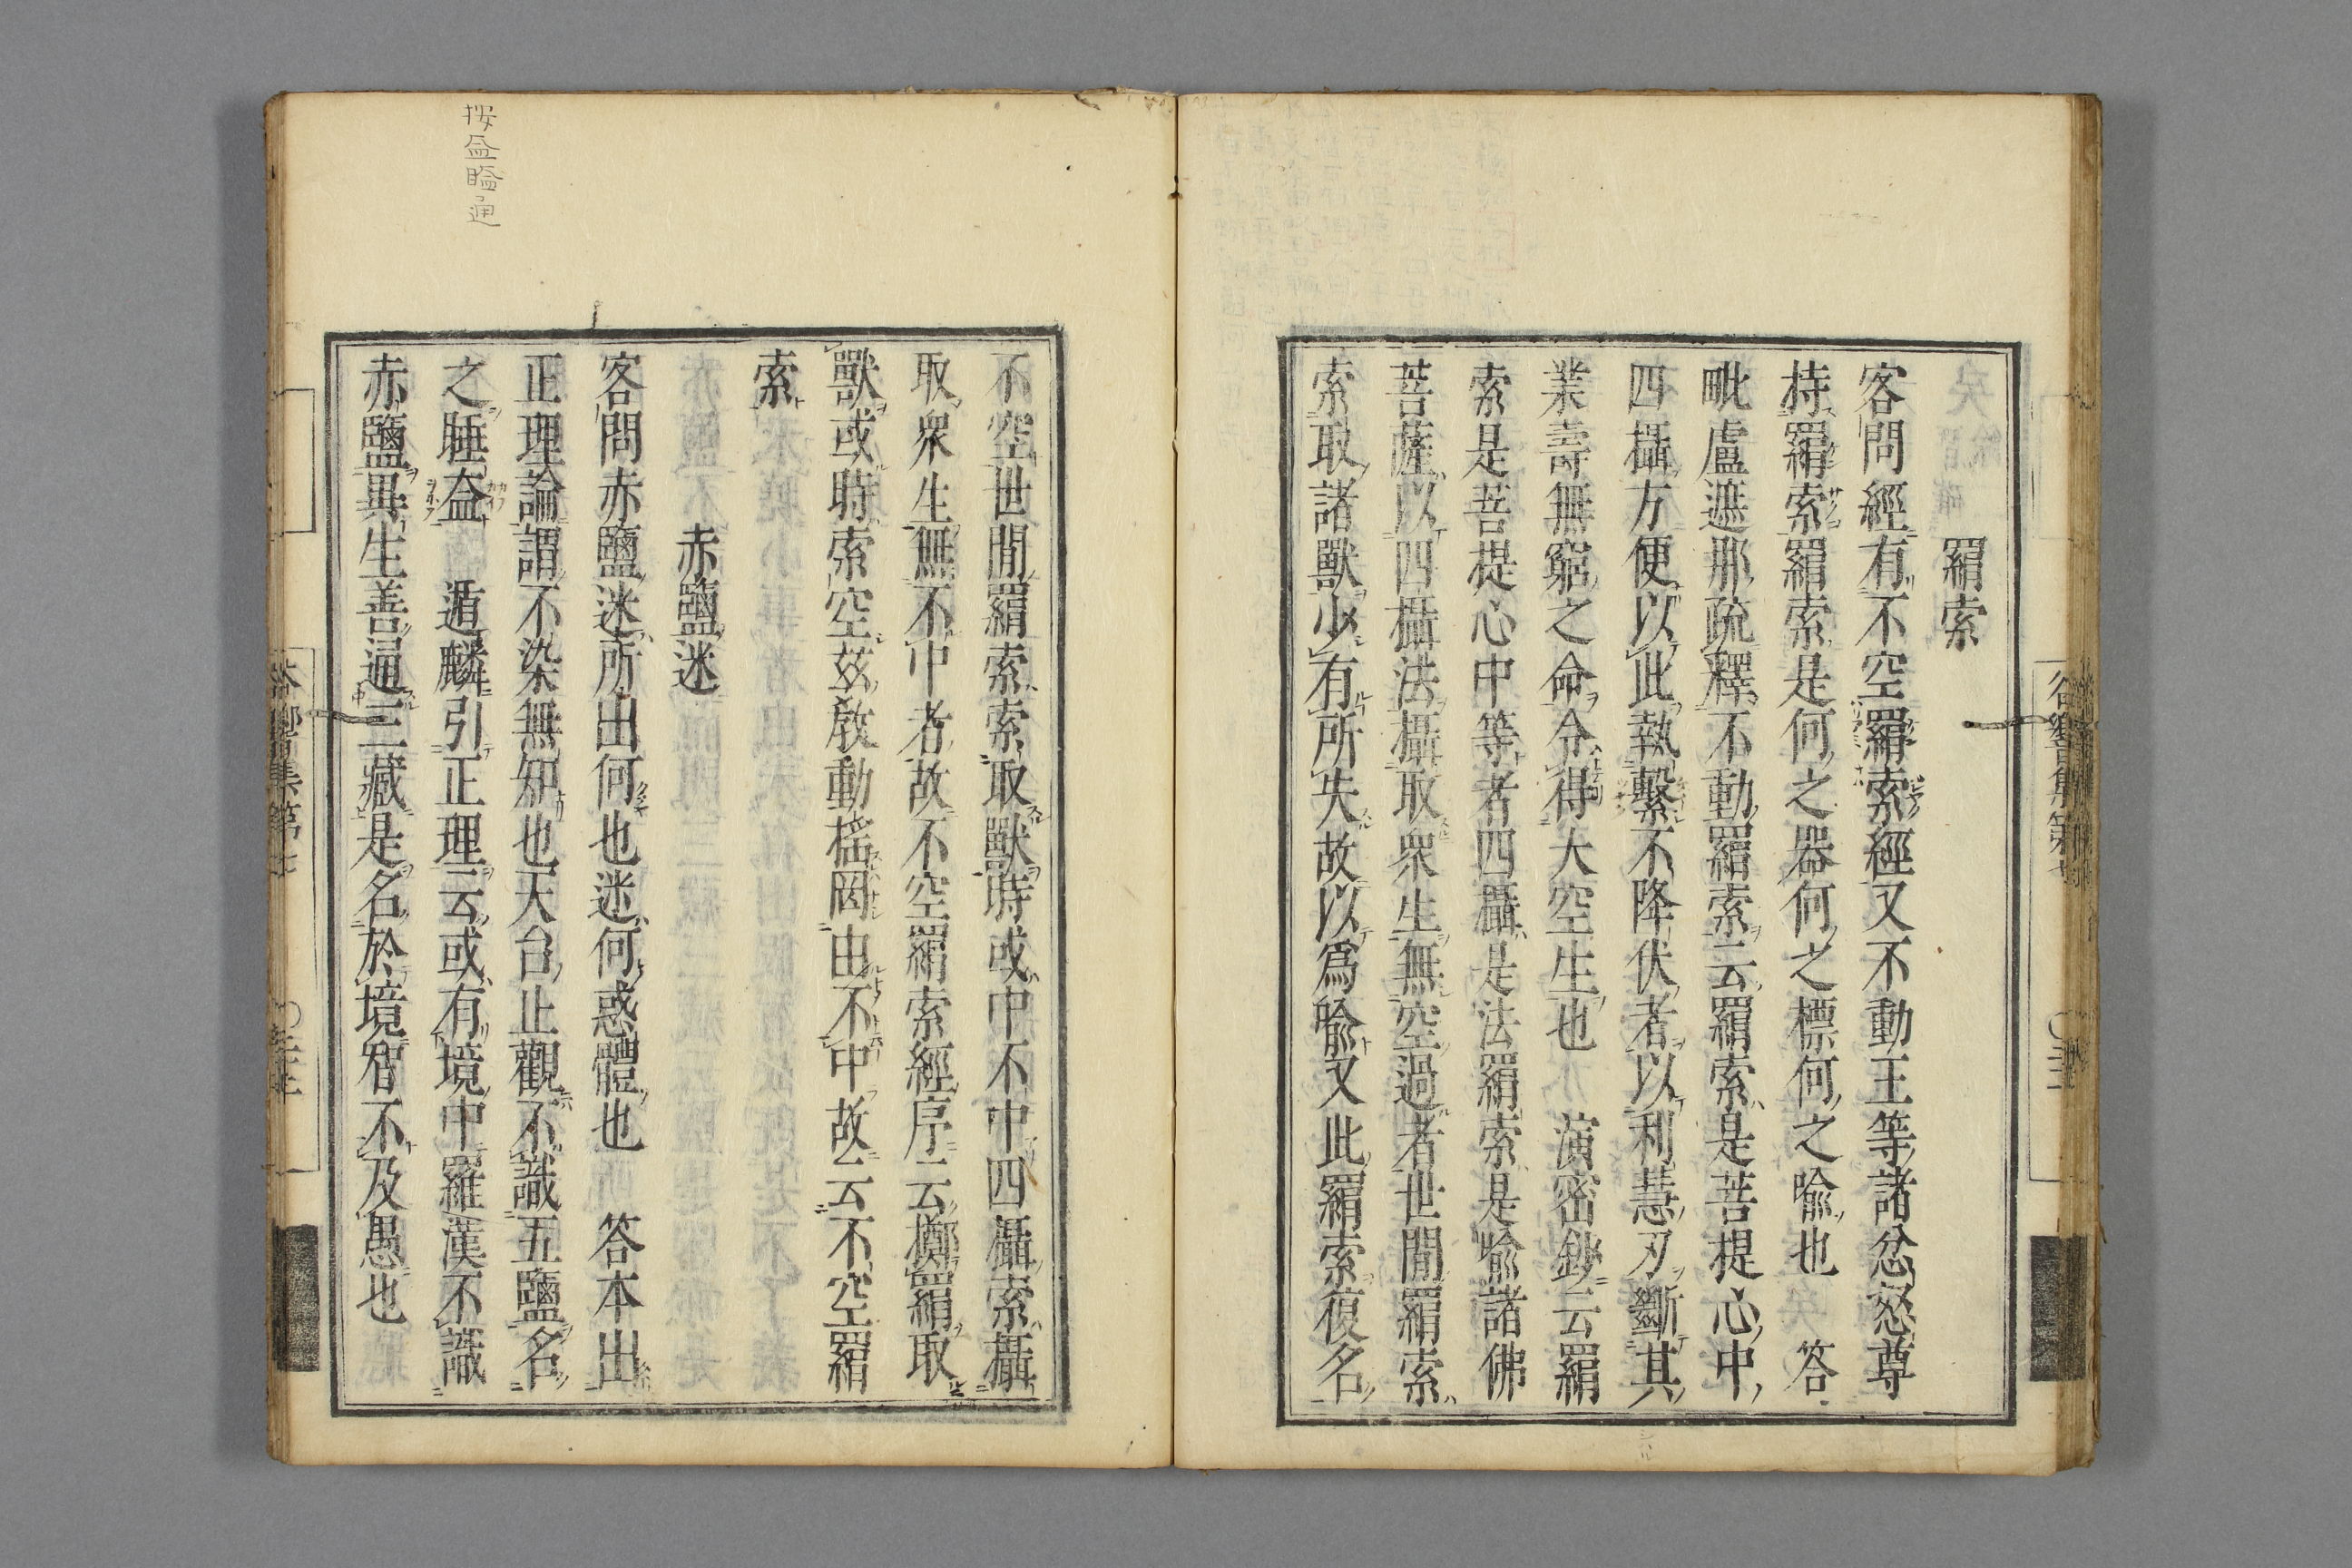 羂索
客問經有不空羂索經又不動王等諸忿怒尊
持羂索羂索是何之器何之標何之喩也 答
毗盧遮那疏釋不動羂索云羂索是菩提心中
四攝方便以此執繫不降伏者以利慧刃斷其
業壽無窮之命令得大空生也 演密鈔云羂
索是菩提心中等者四攝是法羂索是喩諸佛
菩薩以四攝法攝取衆生無空過者世間羂索
索取諸獸少有所失故以爲喩又此羂索復名
不空世間羂索索取獸時或中不中四攝索攝
取衆生無不中者故不空羂索經序云擲羂取
獸或時索空玆敎動搖罔由不中故云不空羂
索
赤鹽迷
客問赤鹽迷所出何也迷何惑體也 答本出
正理論謂不染無知也天台止觀不識五鹽名
之睡盇 遁麟引正理云或有境中羅漢不識
赤鹽異生善通三藏是名於境智不及愚也
按盇瞌通
谷響集第七